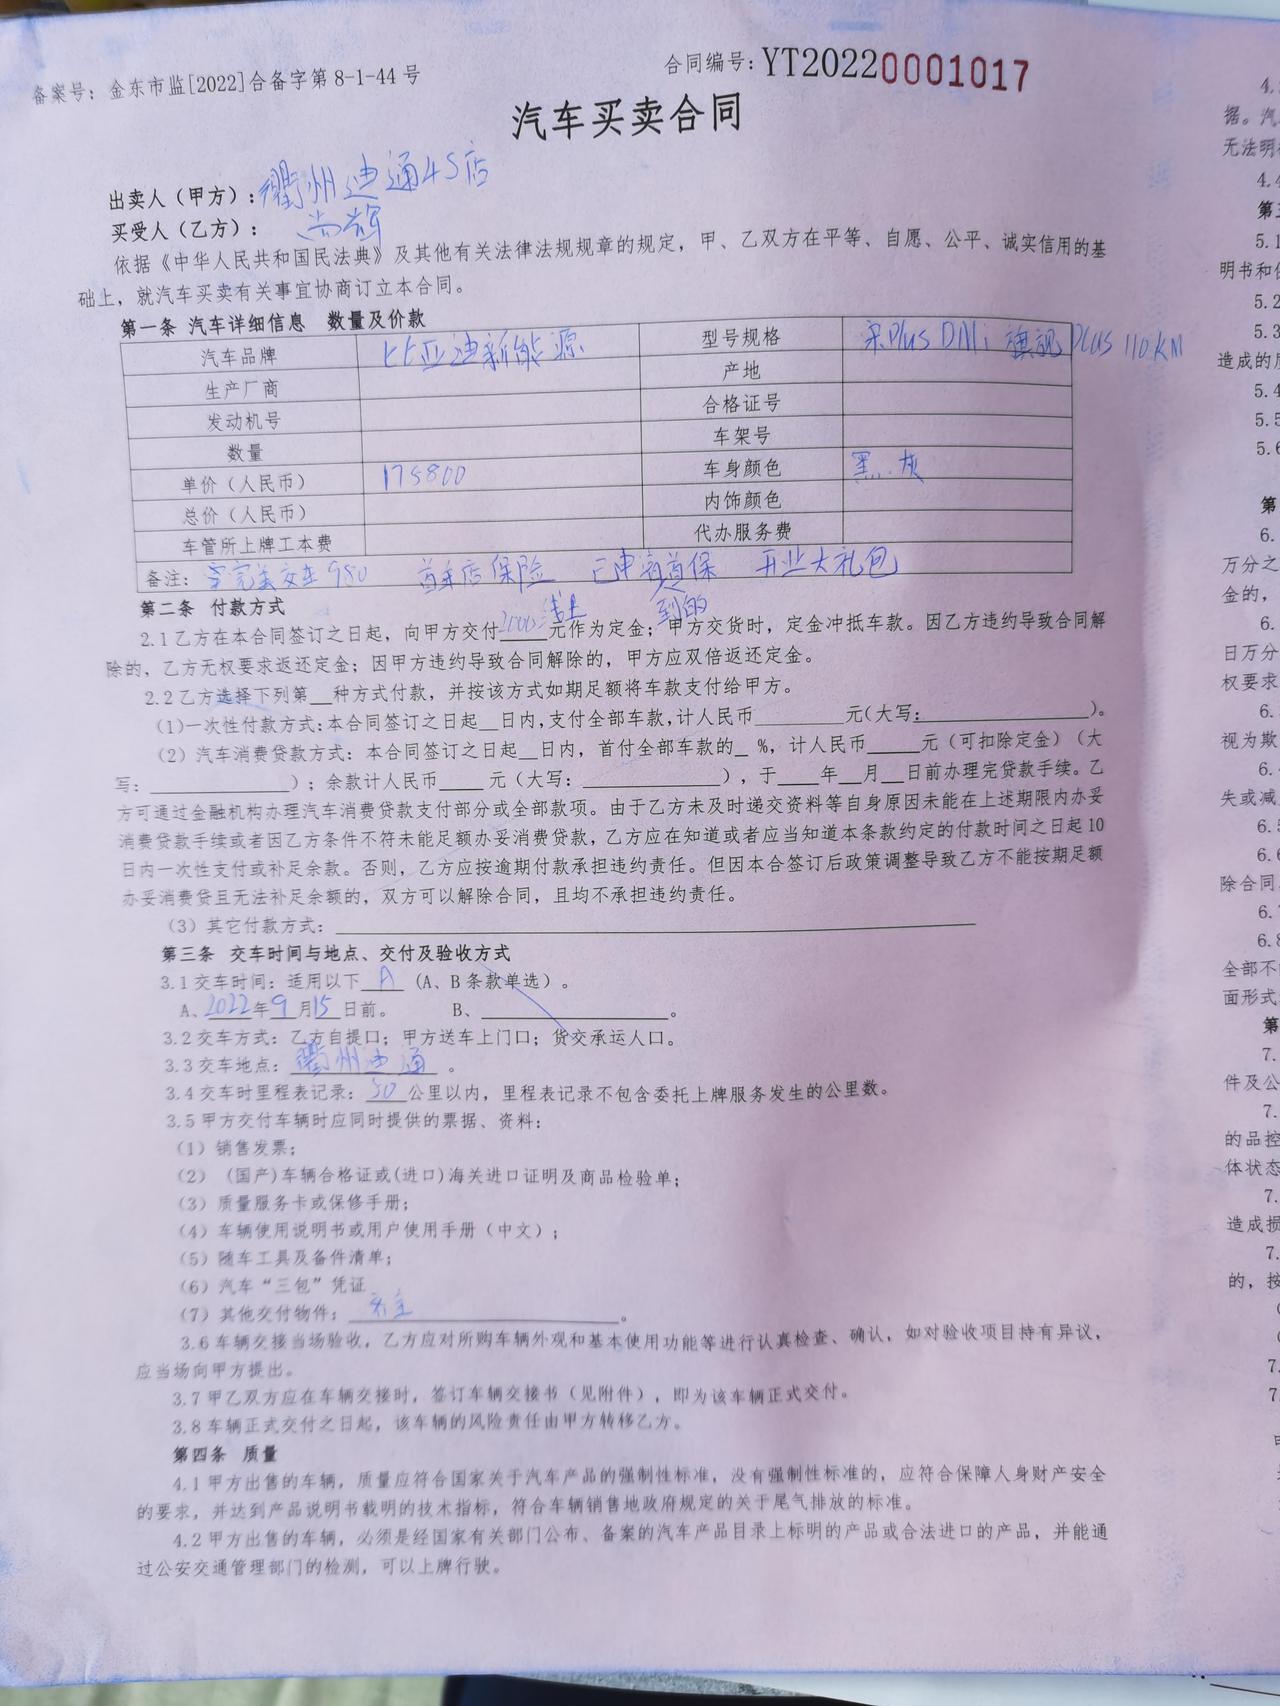 备案号：金东市监[2022]合备字第 8-1-44 号
合同编号：YT20220001017
汽车买卖合同
出卖人（甲方）：衢州迪通4S店
买受人（乙方）：尚辉
依据《中华人民共和国民法典》及其他有关法律法规规章的规定，甲、乙双方在平等、自愿、公平、诚实信用的基
础上，就汽车买卖有关事宜协商订立本合同。
第一条 汽车详细信息 数量及价款
汽车品牌 比亚迪新能源 型号规格 宋Plus DMi 旗舰PLUS 110KM
生产厂商 产地
发动机号 合格证号
数量 车架号
单价（人民币） 175800 车身颜色 黑..灰
总价（人民币） 内饰颜色
车管所上牌工本费 代办服务费
备注： 完美交车980 首年店保险 已申请首保 开业大礼包
到的
第二条 付款方式
2.1 乙方在本合同签订之日起，向甲方交付2000 元作为定金；甲方交货时，定金冲抵车款。因乙方违约导致合同解
除的，乙方无权要求返还定金；因甲方违约导致合同解除的，甲方应双倍返还定金。
2.2 乙方选择下列第__种方式付款，并按该方式如期足额将车款支付给甲方。
(1)一次性付款方式：本合同签订之日起__日内，支付全部车款，计人民币________元(大写：________________)。
（2）汽车消费贷款方式：本合同签订之日起__日内，首付全部车款的_ %，计人民币_____元（可扣除定金）（大
写：______________）；余款计人民币____ 元（大写：______________），于____年__月__日前办理完贷款手续。乙
方可通过金融机构办理汽车消费贷款支付部分或全部款项。由于乙方未及时递交资料等自身原因未能在上述期限内办妥
消费贷款手续或者因乙方条件不符未能足额办妥消费贷款，乙方应在知道或者应当知道本条款约定的付款时间之日起 10
日内一次性支付或补足余款。否则，乙方应按逾期付款承担违约责任。但因本合签订后政策调整导致乙方不能按期足额
办妥消费贷且无法补足余额的，双方可以解除合同，且均不承担违约责任。
（3）其它付款方式：
第三条 交车时间与地点、交付及验收方式
3.1 交车时间：适用以下 A （A、B 条款单选）。
A、2022年 9 月15 日前。 B、__________________。
3.2 交车方式：乙方自提口；甲方送车上门口；货交承运人口。
3.3 交车地点：衢州迪通 。
3.4 交车时里程表记录：50 公里以内，里程表记录不包含委托上牌服务发生的公里数。
3.5 甲方交付车辆时应同时提供的票据、资料：
（1）销售发票；
（2） (国产)车辆合格证或(进口)海关进口证明及商品检验单；
（3）质量服务卡或保修手册；
（4）车辆使用说明书或用户使用手册（中文）；
（5）随车工具及备件清单；
（6）汽车“三包”凭证
（7）其他交付物件：
3.6 车辆交接当场验收，乙方应对所购车辆外观和基本使用功能等进行认真检查、确认，如对验收项目持有异议，
应当场向甲方提出。
3.7 甲乙双方应在车辆交接时，签订车辆交接书（见附件），即为该车辆正式交付。
3.8 车辆正式交付之日起，该车辆的风险责任由甲方转移乙方。
第四条 质量
4.1 甲方出售的车辆，质量应符合国家关于汽车产品的强制性标准，没有强制性标准的，应符合保障人身财产安全
的要求，并达到产品说明书载明的技术指标，符合车辆销售地政府规定的关于尾气排放的标准。
4.2 甲方出售的车辆，必须是经国家有关部门公布、备案的汽车产品目录上标明的产品或合法进口的产品，并能通
过公安交通管理部门的检测，可以上牌行驶。